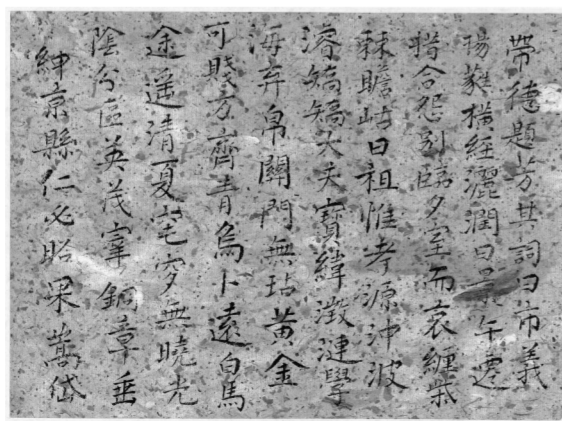 帶德題芳其詞曰市義
揚蕤橫經灑潤日午遷
合怨别臨夕室而哀纏
棘瞻岵曰祖惟考源沖波
濬矯矯大夫寶緯澂漣學
海弃帛關門無玷黃金
可賤方齊青烏卜遠白馬
途遥清夏宅穸無曉光
陰分區英茂宰銅章垂
紳京縣仁必昭果蒿岱